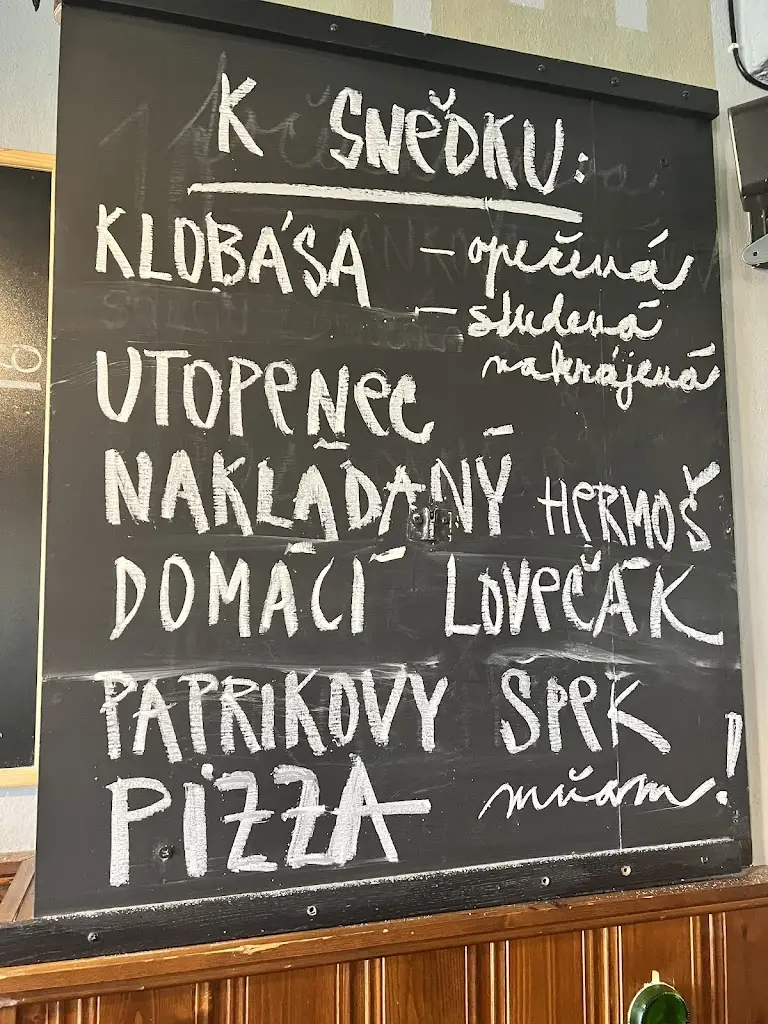 K SNĚDKU:
KLOBÁSA - opečená
- studená
nakrájená
UTOPENEC
NAKLÁDANÝ HERMOŠ
DOMÁCÍ LOVEČÁK
PAPRIKOVY SPEK
PIZZA mňam!